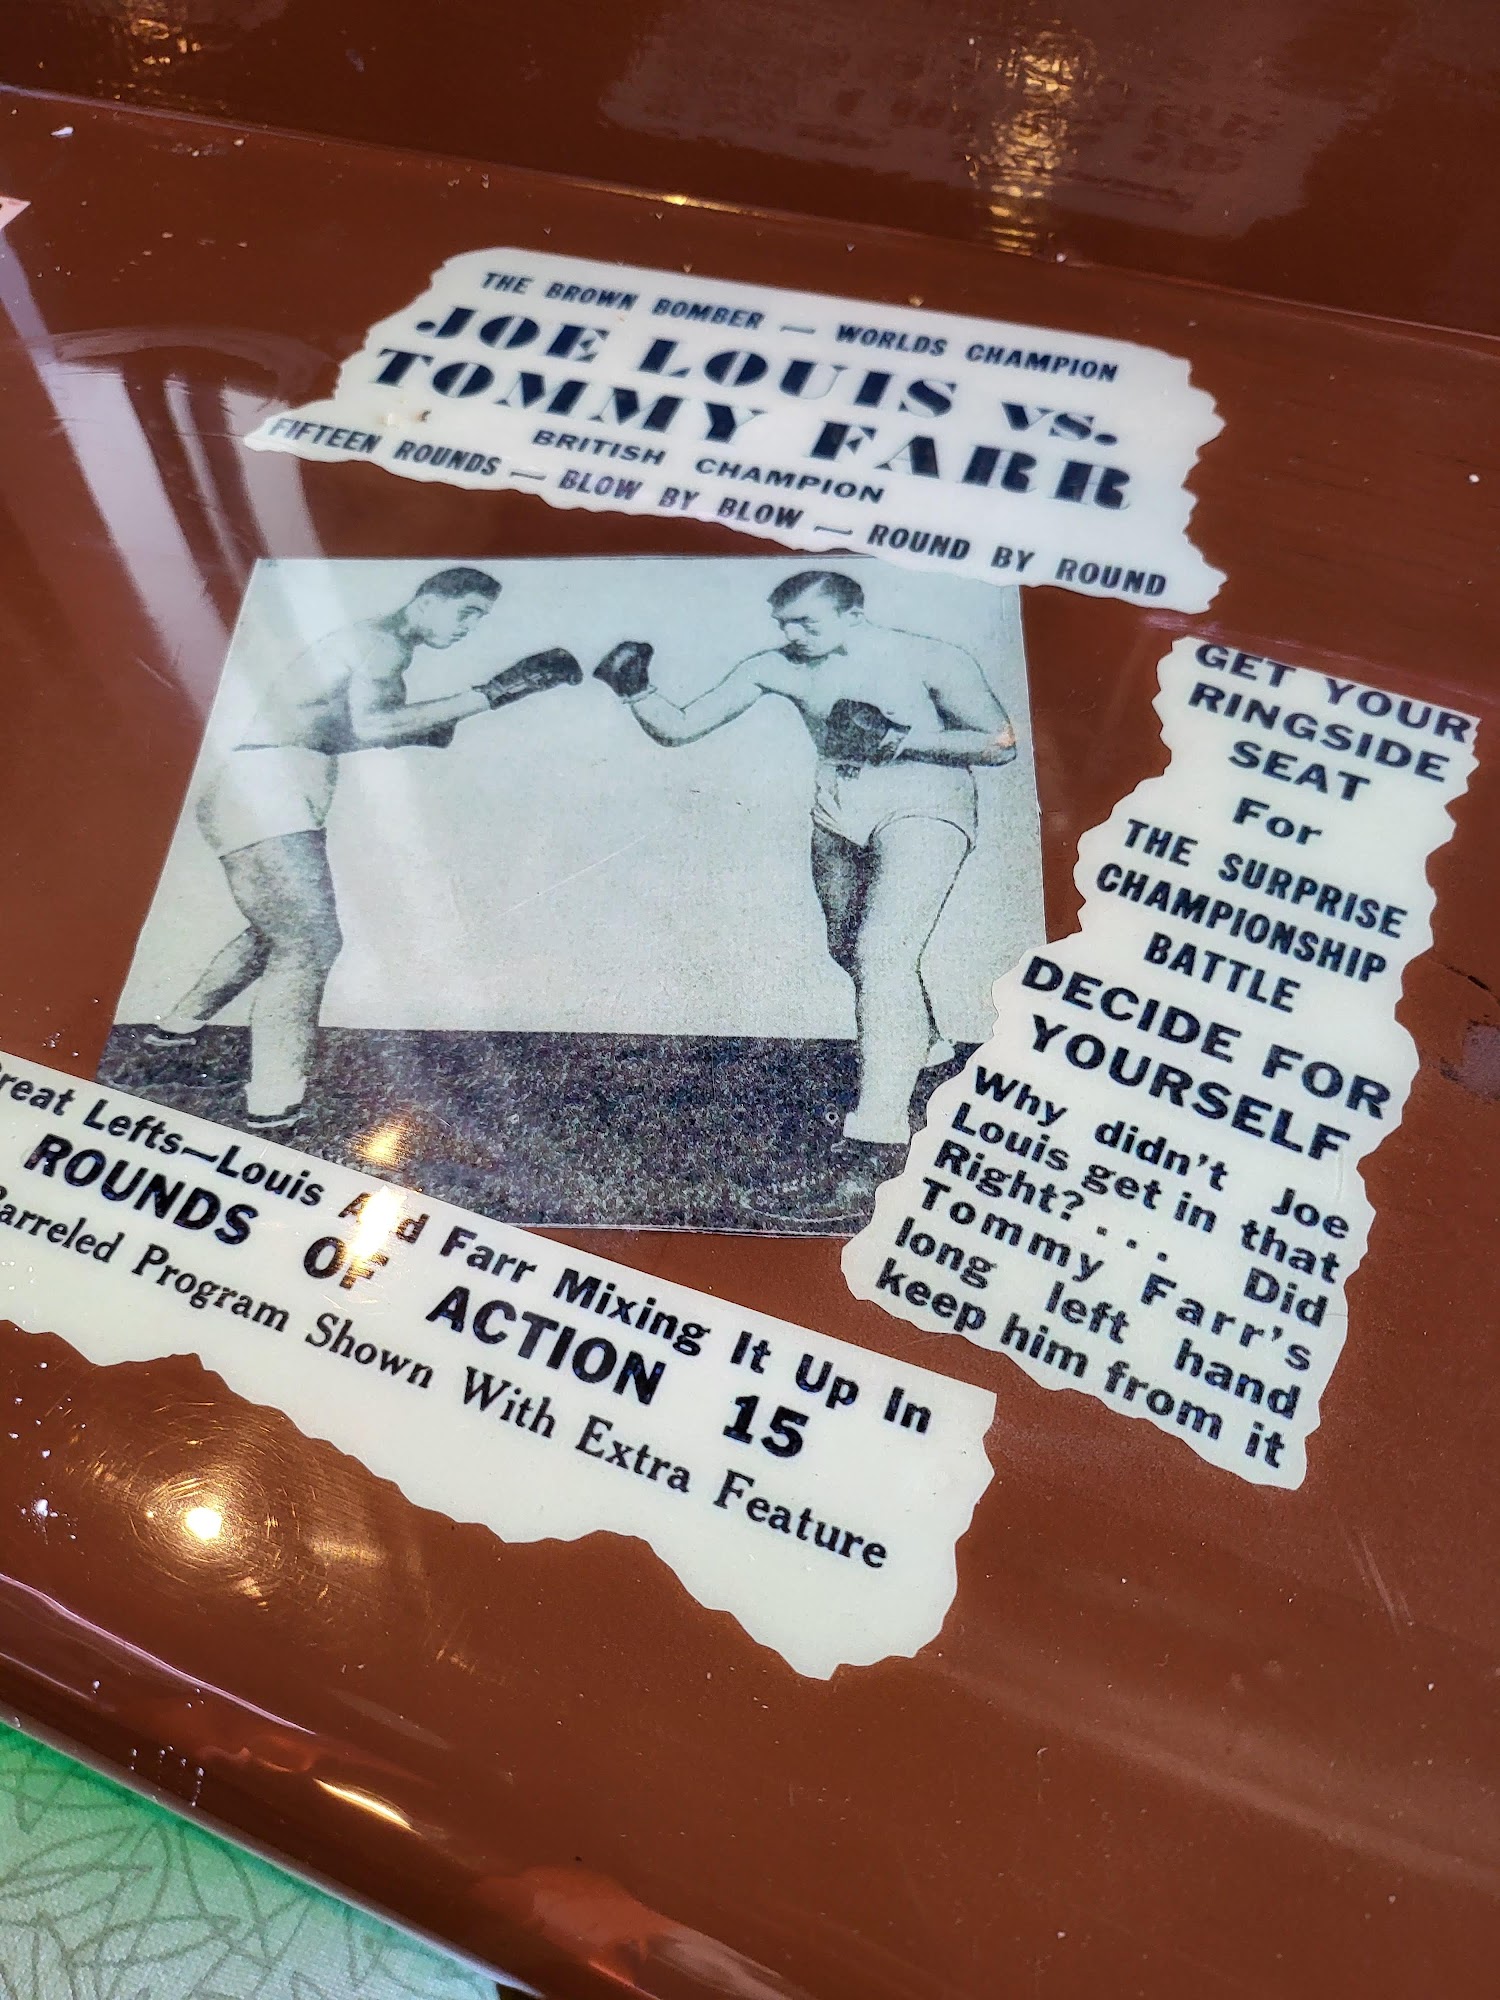 THE BROWN BOMBER — WORLDS CHAMPION
JOE LOUIS vs.
TOMMY FARR
BRITISH CHAMPION
FIFTEEN ROUNDS — BLOW BY BLOW — ROUND BY ROUND
GET YOUR
RINGSIDE
SEAT
For
THE SURPRISE
CHAMPIONSHIP
BATTLE
DECIDE FOR
YOURSELF
Why didn't Joe
Louis get in that
Right? . . . Did
Tommy Farr's
long left hand
keep him from it
Lefts—Louis And Farr Mixing It Up In
ROUNDS OF ACTION 15
Program Shown With Extra Feature